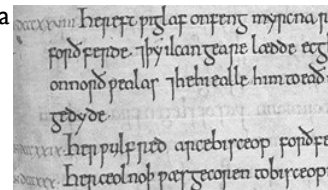 a
dcccxxviii Her eft ƿiglaf onfeng myrcna r
forðferde. ⁊ þy ilcan geare lædde ecg
on norð ƿealas ⁊ he hi ealle him to ead
gedyde.
dcccxxix. Her ƿulfred arcebisceop forðfe
dcccxxx. Her ceolnoþ ƿæs gecoren to bisceop